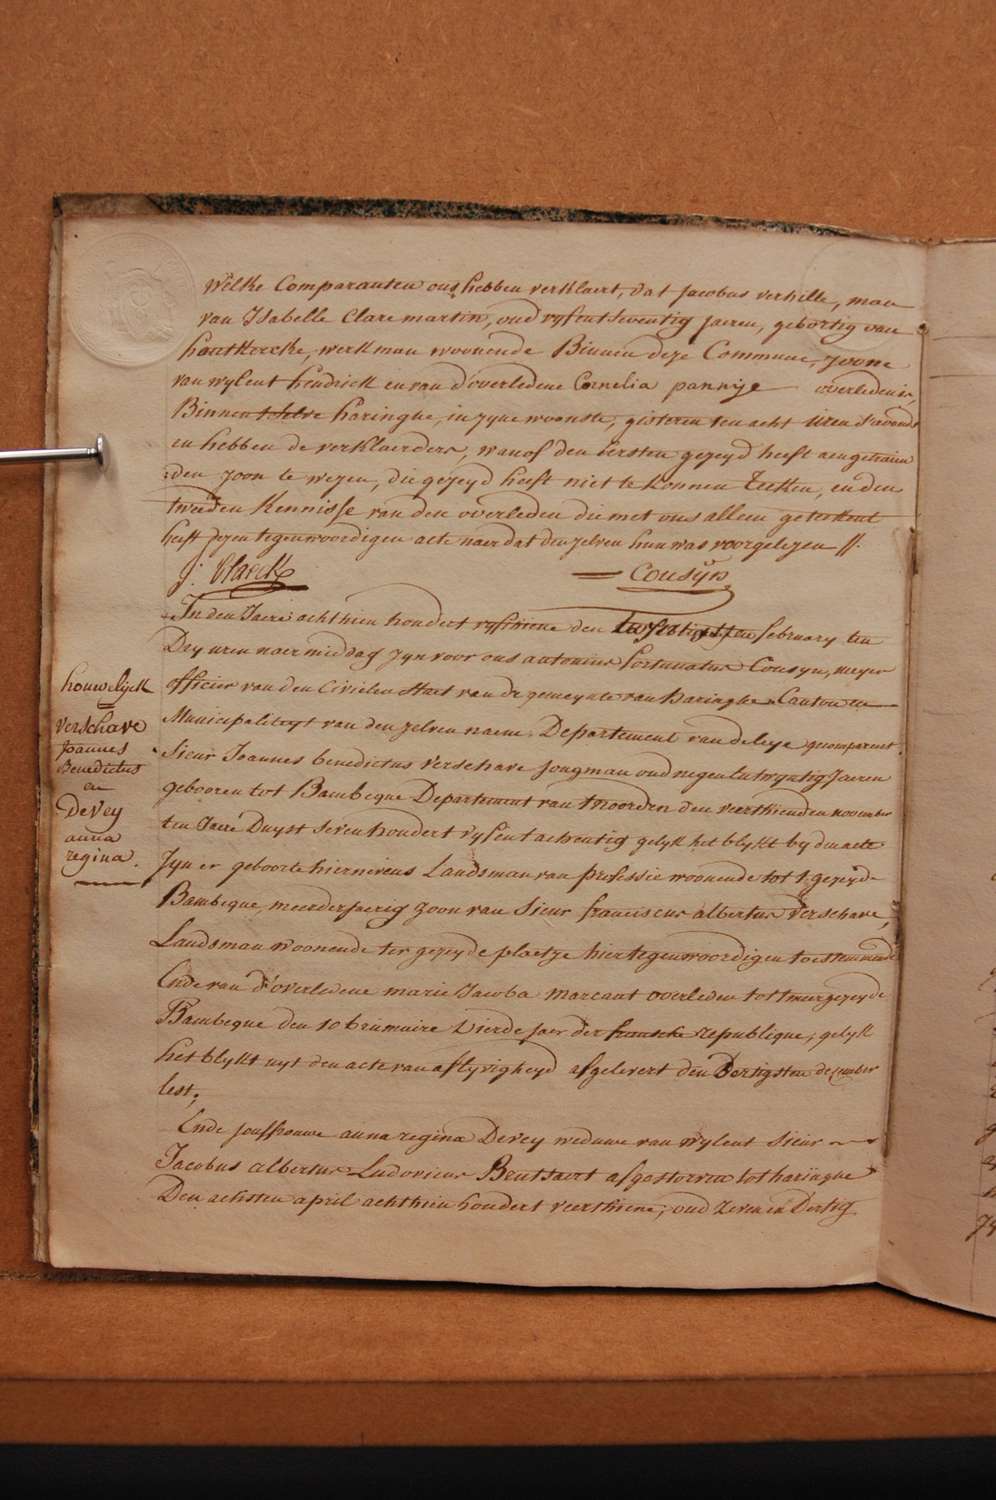 Welke Comparanten ons hebben verklaert, dat Jacobus verhille, man
van Isabelle Clare martin, oud vyfentseventig jaeren, gebortig van
houtkercke, werkman woonende Binnen deze Commune, zoone
van wylent hendrick en van d'overledene Cornelia pannije overleden is,
Binnen haringhe, in zyne woonste, gisteren ten acht uren s'avonds
en hebben de verklaerders, wanof den eersten gezeyd heeft aengetrauwden
zoon te wezen, die gezeyd heeft niet te konnen teeken, en den
tweeden Kennisse van den overleden die met ons alleen geteekent
heeft dezen tegenwoordigen acte naer dat den zelven hun was voorgelezen //.
Cousÿn
In den Jaere achthien hondert vyfthiene den february ten
Dry uren naermiddag zyn voor ons antonius fortunatus Cousyn, meyer
officier van den Civielen staet van de gemeynte van haringhe Canton en
Municipaliteyt van den zelven naem Departement van de leye gecompareert
Sieur Joannes benedictus Verschave jongman oud negenentwyntig Jaeren
gebooren tot Bambeque Departement van t'noorden den veerthienden november
ten Jaere Duyst sevenhondert vyfentachentig gelyk het blykt by den acte
zyner geboorte hiernevens Landsman van professie woonende tot t'gezeyde
Bambeque, meerderjaerig zoon van Sieur franciscus albertus Verschave,
Landsman woonende ter gezeyde plaetze hier tegenwoordigen toestemmende
Ende van d'overledene marie Jacoba marcant overleden tot meergezeyde
Bambeque den 10 brumaire vierde jaer der fransche republique, gelyk
het blykt uyt den acte van aflyvigheyd afgelevert den Dertigsten december
lest;
Ende jouffrouwe anna regina Devey weduwe van wylent Sieur
Jacobus albertus Ludovicus Beutsaert afgestorven tot haringhe
Den achsten april achthien hondert veerthiene, oud zeven en Dertig
houwelyck
Verschave
Joannes
Benedictus
en
Devey
anna
regina.